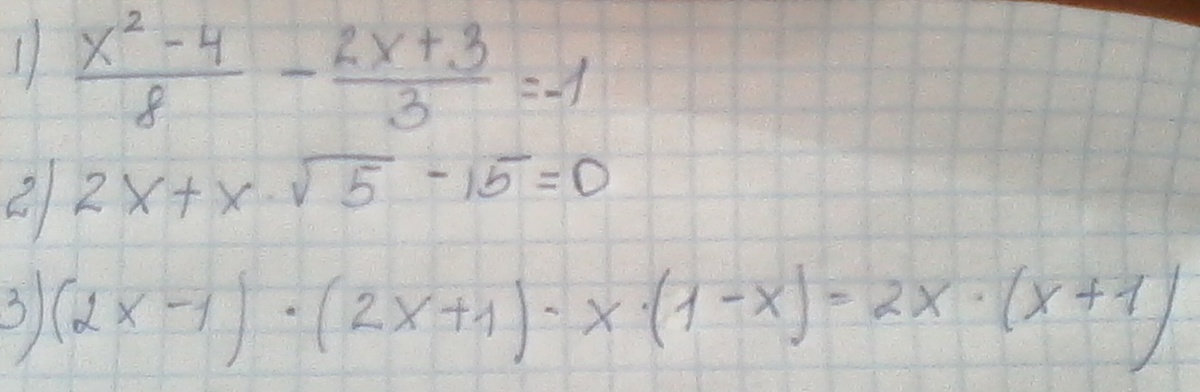 1) (x² - 4)/8 - (2x + 3)/3 = -1
2) 2x + x · √5 - 15 = 0
3) (2x - 1) · (2x + 1) - x · (1 - x) = 2x · (x + 1)